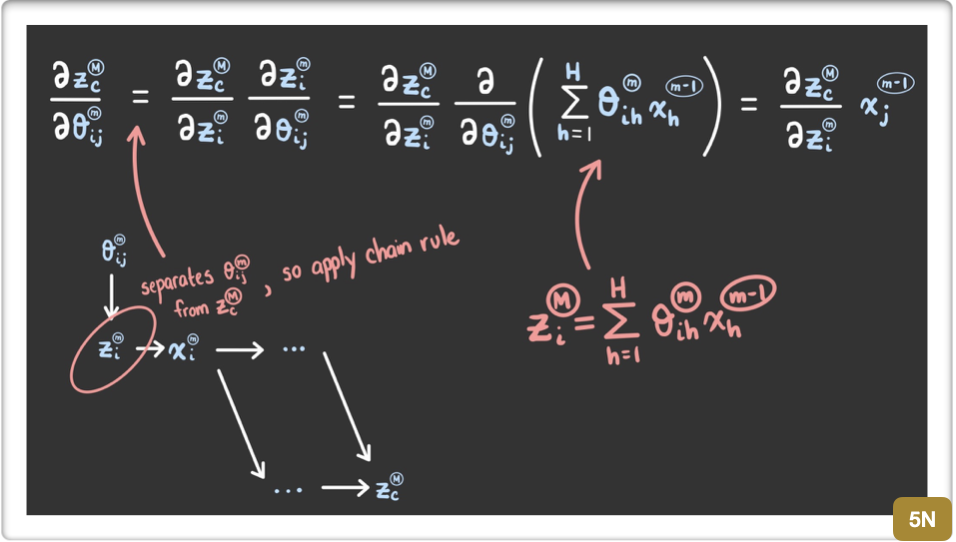 ∂z_c^Ⓜ/∂θ_ij^ⓜ = ∂z_c^Ⓜ/∂z_i^ⓜ ∂z_i^ⓜ/∂θ_ij^ⓜ = ∂z_c^Ⓜ/∂z_i^ⓜ ∂/∂θ_ij^ⓜ ( Σ_{h=1}^{H} θ_ih^ⓜ x_h^(m-1) ) = ∂z_c^Ⓜ/∂z_i^ⓜ x_j^(m-1)
θ_ij^ⓜ
separates θ_ij^ⓜ from z_c^Ⓜ, so apply chain rule
z_i^Ⓜ = Σ_{h=1}^{H} θ_ih^ⓜ x_h^(m-1)
z_i^ⓜ → x_i^ⓜ → ...
... → z_c^Ⓜ
5N